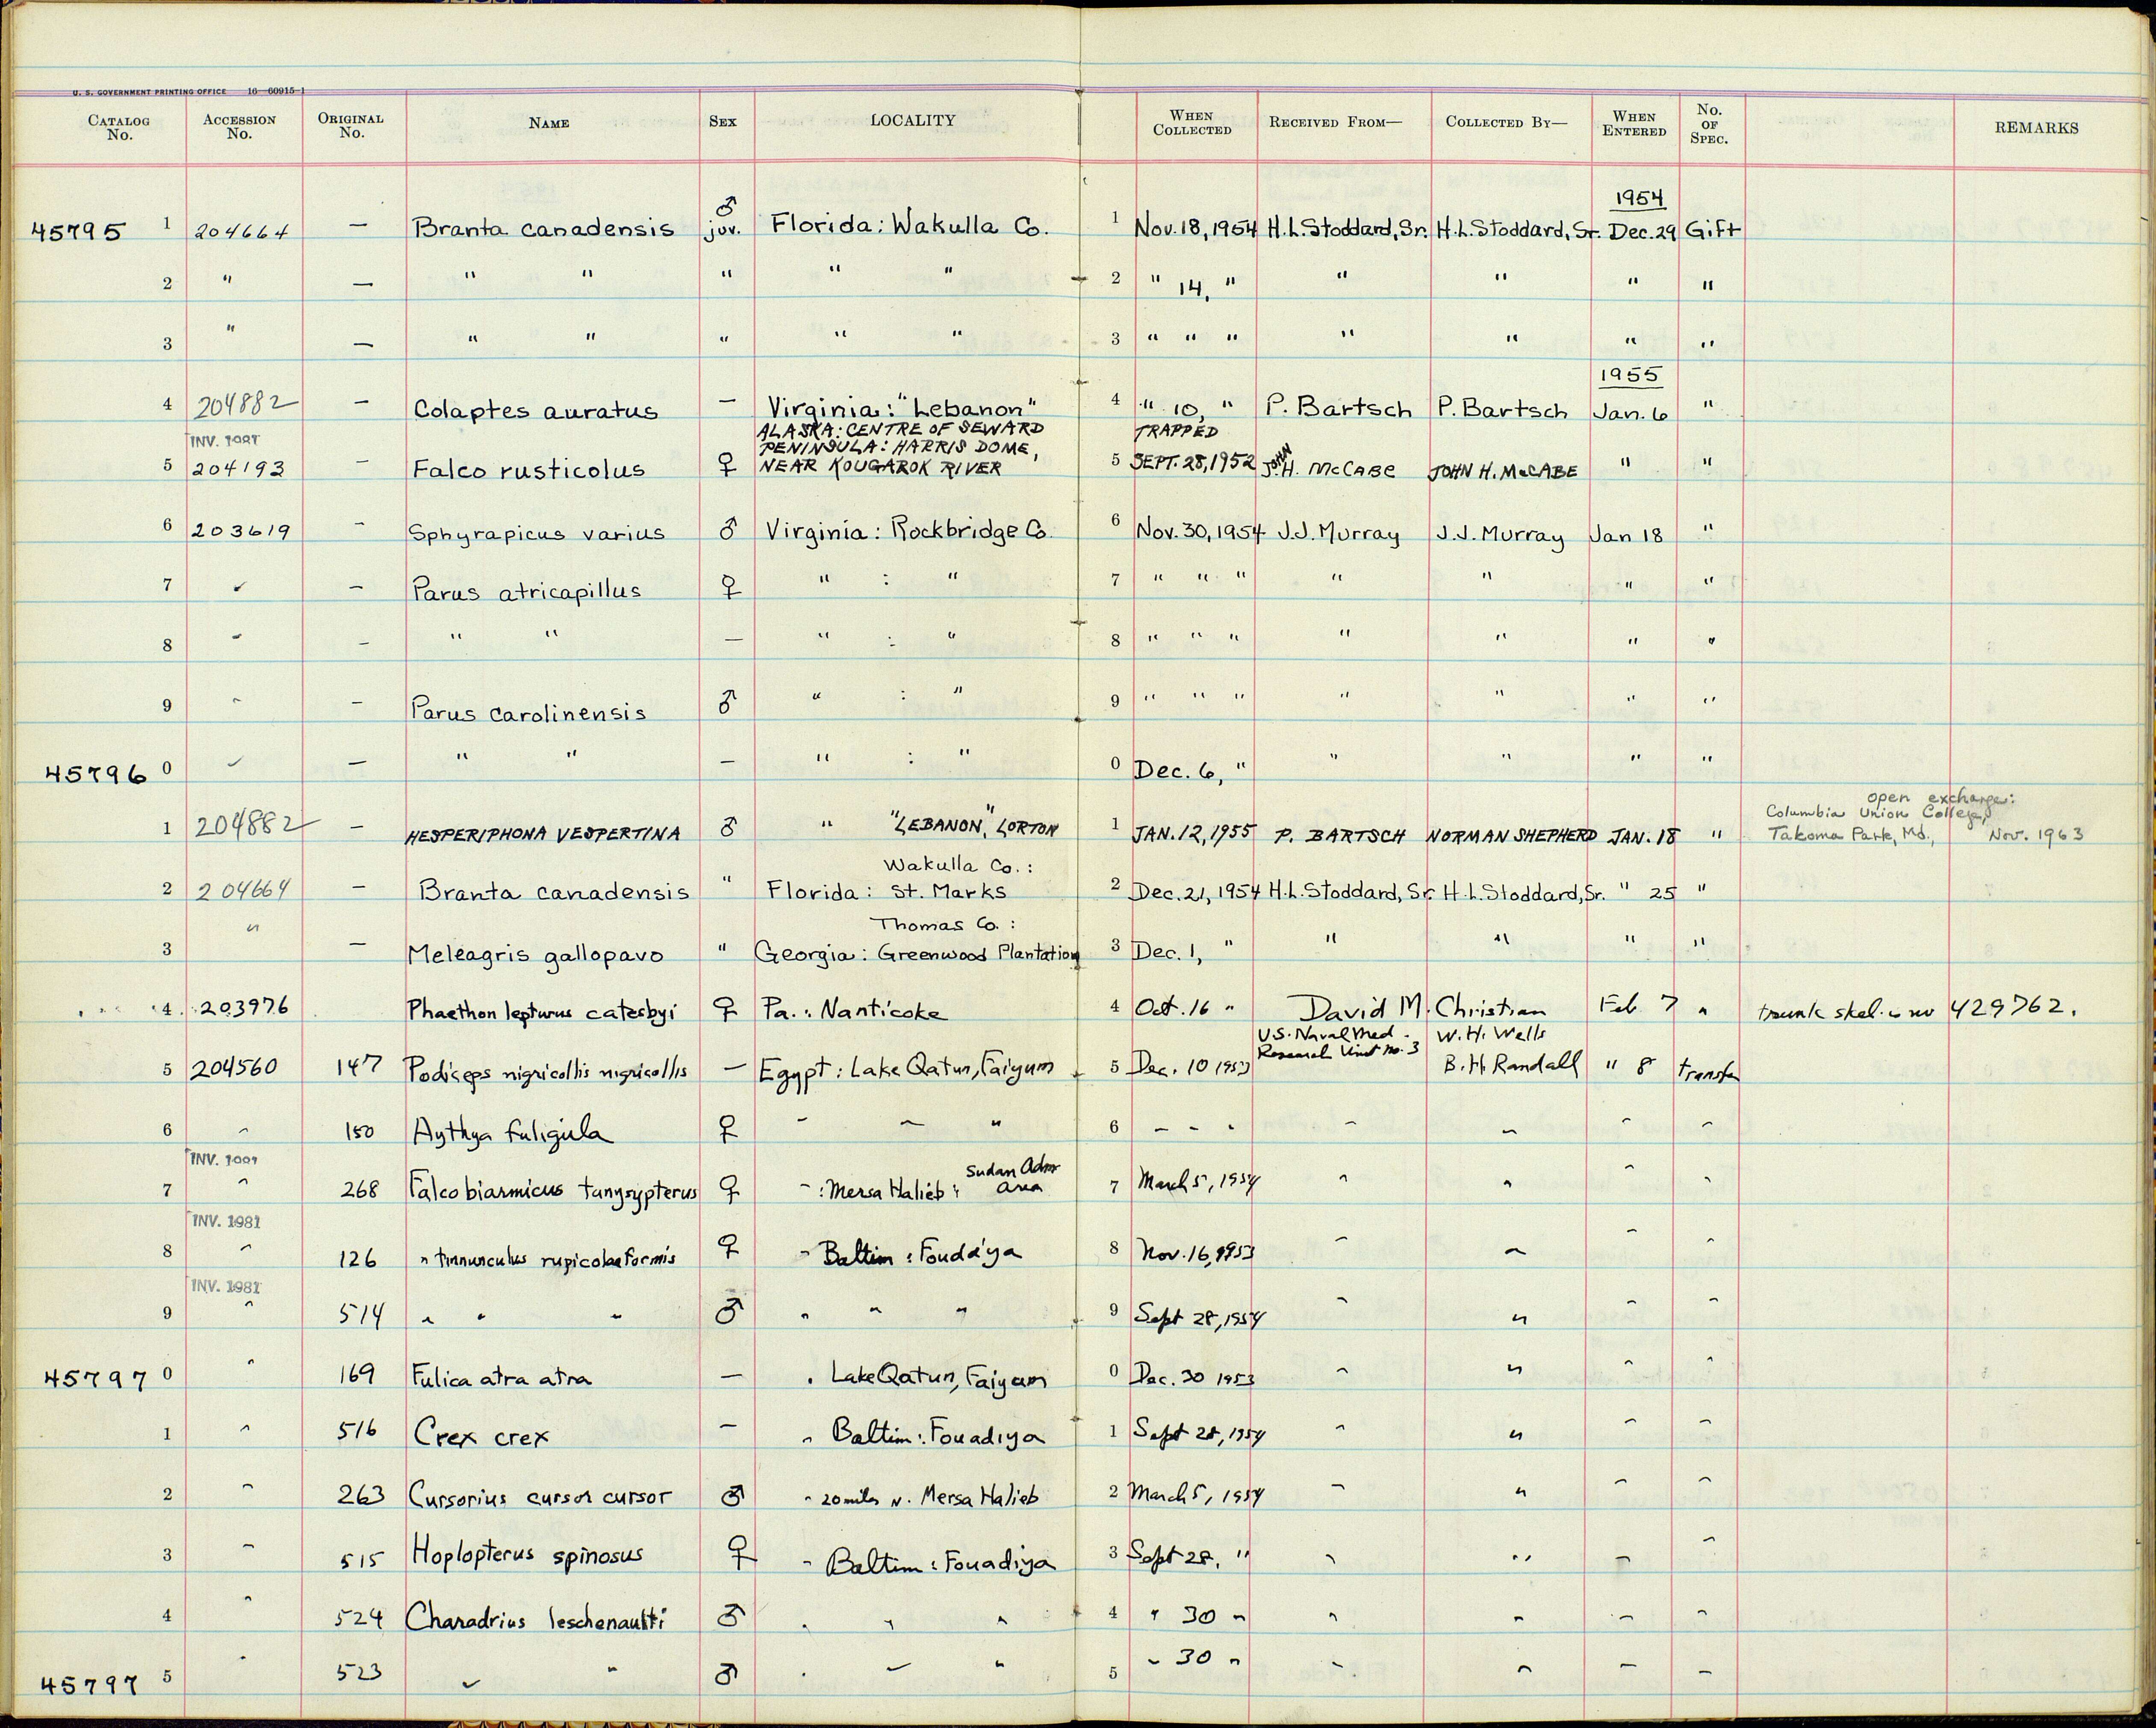 U. S. GOVERNMENT PRINTING OFFICE 16—60915-1
CATALOG No. ACCESSION No. ORIGINAL No. NAME SEX LOCALITY WHEN COLLECTED RECEIVED FROM— COLLECTED BY— WHEN ENTERED No. OF SPEC. REMARKS
1954
45795 1 204664 — Branta canadensis ♂ juv. Florida: Wakulla Co. 1 Nov. 18, 1954 H.L. Stoddard, Sr. H.L. Stoddard, Sr. Dec. 29 Gift
2 " — " " " " " 2 " 14, " " " " "
3 " — " " " " " 3 " " " " " " "
1955
4 204882 — Colaptes auratus — Virginia: "Lebanon" 4 " 10, " P. Bartsch P. Bartsch Jan. 6 "
ALASKA: CENTRE OF SEWARD TRAPPED
INV. PENINSULA: HARRIS DOME,
5 204193 — Falco rusticolus ♀ NEAR KOUGAROK RIVER 5 SEPT. 28, 1952 JOHN H. McCABE JOHN H. McCABE " "
6 203619 — Sphyrapicus varius ♂ Virginia: Rockbridge Co. 6 Nov. 30, 1954 J.J. Murray J.J. Murray Jan 18 "
7 " — Parus atricapillus ♀ " : " 7 " " " " " " "
8 " — " " — " : " 8 " " " " " " "
9 " — Parus carolinensis ♂ " : " 9 " " " " " " "
45796 0 " — " " — " : " 0 Dec. 6, " " " " "
open exchange:
Columbia Union College,
1 204882 — HESPERIPHONA VESPERTINA ♂ " "LEBANON," LORTON 1 JAN. 12, 1955 P. BARTSCH NORMAN SHEPHERD JAN. 18 " Takoma Park, Md., Nov. 1963
Wakulla Co.:
2 204664 — Branta canadensis " Florida: St. Marks 2 Dec. 21, 1954 H.L. Stoddard, Sr. H.L. Stoddard, Sr. " 25 "
Thomas Co.:
3 " — Meleagris gallopavo " Georgia: Greenwood Plantation 3 Dec. 1, " " " " "
4 203976 Phaethon lepturus catesbyi ♀ Pa.: Nanticoke 4 Oct. 16 " David M. Christian Feb 7 " trunk skel. is no 429762.
U.S. Naval Med. W. H. Wells
Research Unit No. 3
5 204560 147 Podiceps nigricollis nigricollis — Egypt: Lake Qatun, Faiyum 5 Dec. 10 1953 B. H. Randall " 8 transfer
6 " 150 Aythya fuligula ♀ " " " 6 " " " " " " "
INV. Sudan Adm
7 " 268 Falco biarmicus tanysypterus ♀ " : Mersa Halieb: area 7 March 5, 1954 " " " "
INV. 1981
8 " 126 " tinnunculus rupicolaeformis ♀ " Baltim: Foudá'ya 8 Nov. 16, 1953 " " " "
INV. 1981
9 " 514 " " " ♂ " " " 9 Sept 28, 1954 " " " "
45797 0 " 169 Fulica atra atra — " Lake Qatun, Faiyum 0 Dec. 30 1953 " " " "
1 " 516 Crex crex — " Baltim: Fouadiya 1 Sept 28, 1954 " " " "
2 " 263 Cursorius cursor cursor ♂ " 20 miles N. Mersa Halieb 2 March 5, 1954 " " " "
3 " 515 Hoplopterus spinosus ♀ " Baltim: Fouadiya 3 Sept 28, " " " " "
4 " 524 Charadrius leschenaulti ♂ " " " 4 " 30 " " " " "
45797 5 " 523 " " ♂ " " " 5 " 30 " " " " "